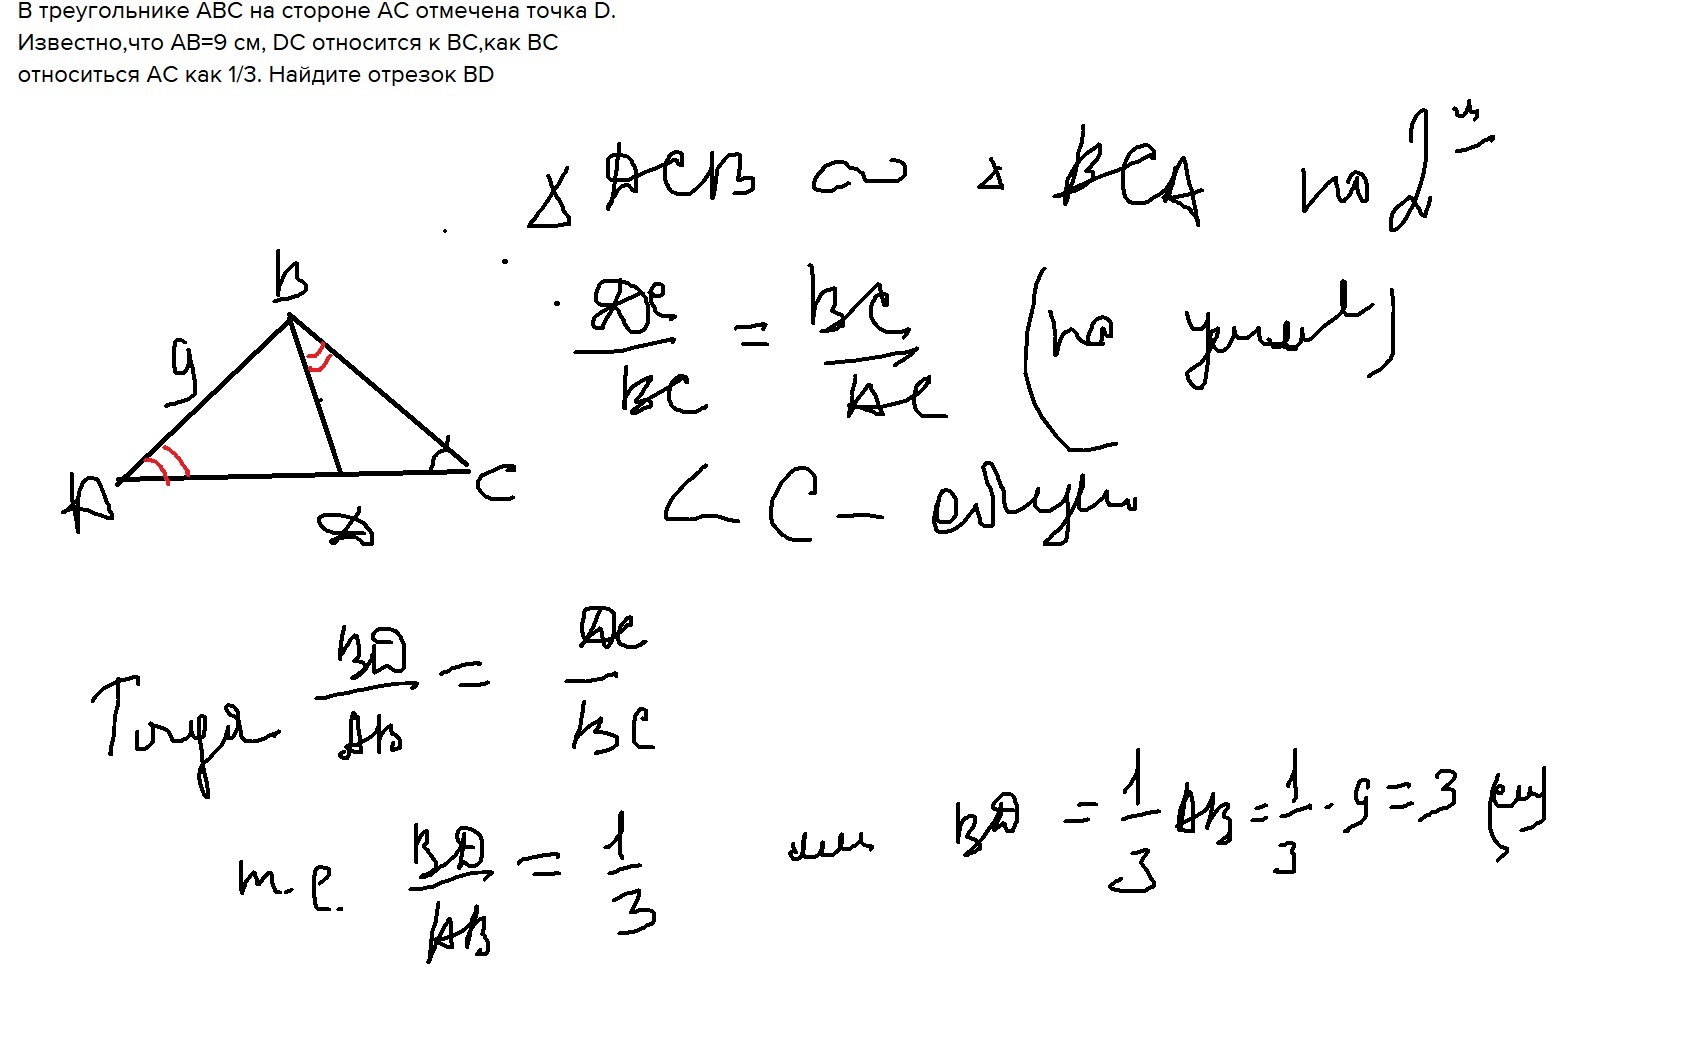 В треугольнике ABC на стороне AC отмечена точка D.
Известно,что AB=9 см, DC относится к BC,как BC
относиться AC как 1/3. Найдите отрезок BD
Δ DCB ∾ Δ BCA по 2м
DC/BC = BC/AC (по услов)
B
9
A
D
C
∠ C - общий
Тогда BD/AB = DC/BC
т.е. BD/AB = 1/3 или BD = 1/3 AB = 1/3 · 9 = 3 (см)